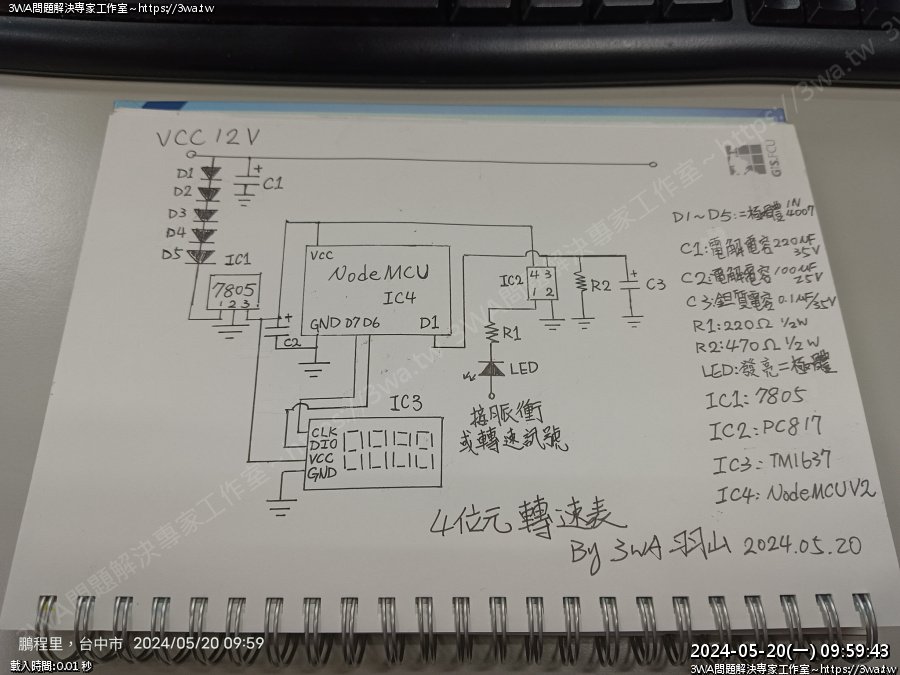 3WA問題解決專家工作室~https://3wa.tw
3WA問題解決專家工作室~https://3wa.tw
VCC 12V
D1
D2
D3
D4
D5
+
C1
IC1
7805
1 2 3
+
C2
VCC
NodeMCU
IC4
GND D7 D6
D1
IC2
4 3
1 2
R1
LED
R2
+
C3
接脈衝
或轉速訊號
IC3
CLK
DIO
VCC
GND
GIS.FCU
D1~D5:二極體1N4007
C1:電解電容220μF 35V
C2:電解電容100μF 25V
C3:鉭質電容0.1μF/35V
R1:220Ω 1/2W
R2:470Ω 1/2W
LED:發亮二極體
IC1:7805
IC2:PC817
IC3:TM1637
IC4:NodeMCUV2
4位元 轉速表
By 3WA 羽山 2024.05.20
3WA問題解決專家工作室~https://3wa.tw
鵬程里,台中市 2024/05/20 09:59
載入時間:0.01 秒
2024-05-20(一) 09:59:43
3WA問題解決專家工作室~https://3wa.tw